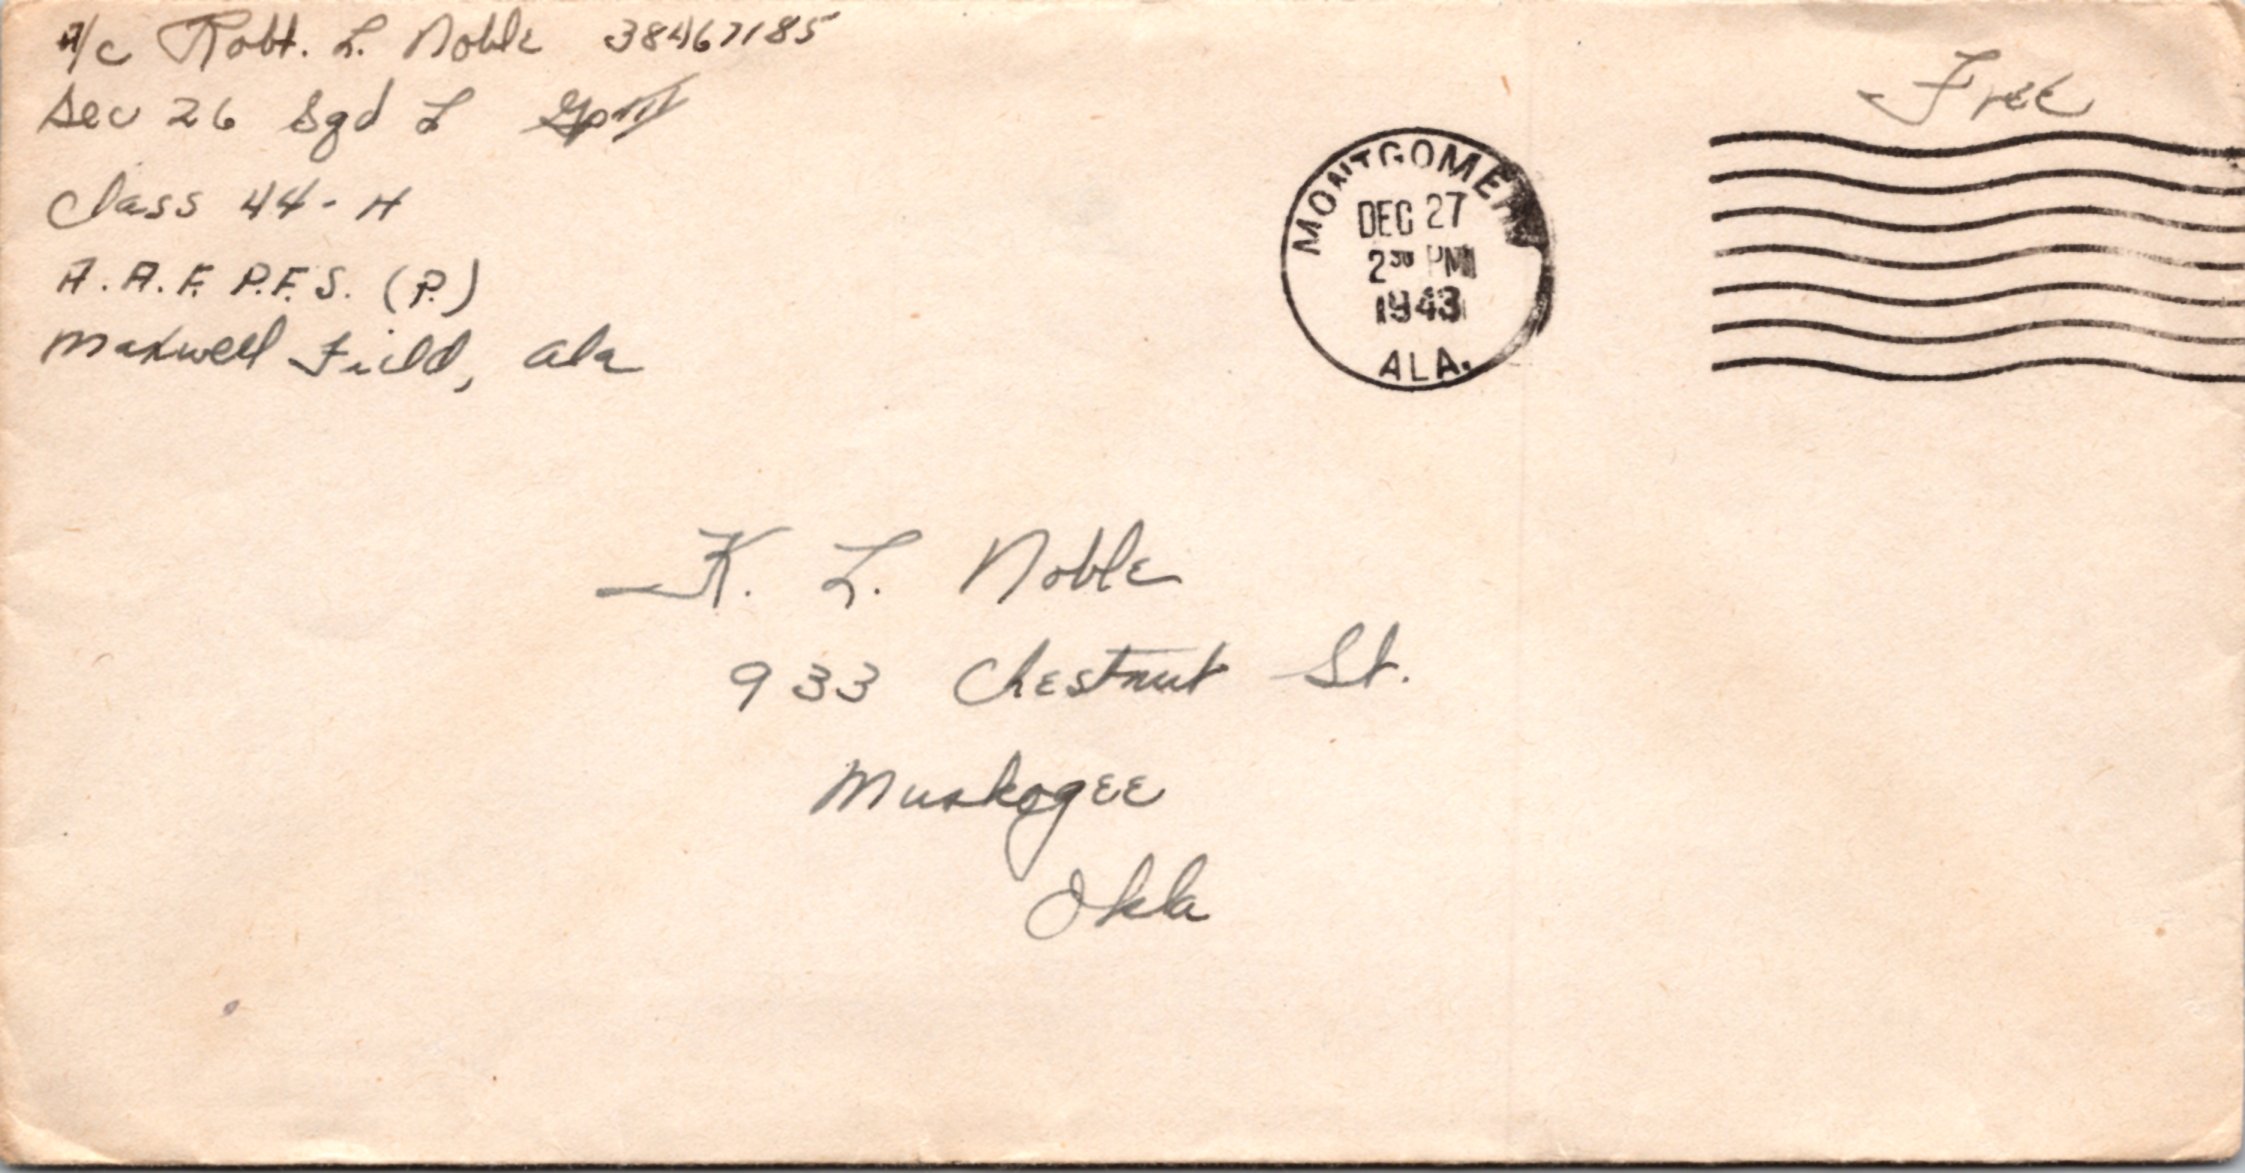 A/C Robt. L. Noble 38467185
Sec 26 Sqd L
Class 44-H
A.A.F. P.F.S. (P.)
Maxwell Field, Ala
Free
MONTGOMERY
DEC 27
2 30 PM
1943
ALA.
K. L. Noble
933 Chestnut St.
Muskogee
Okla